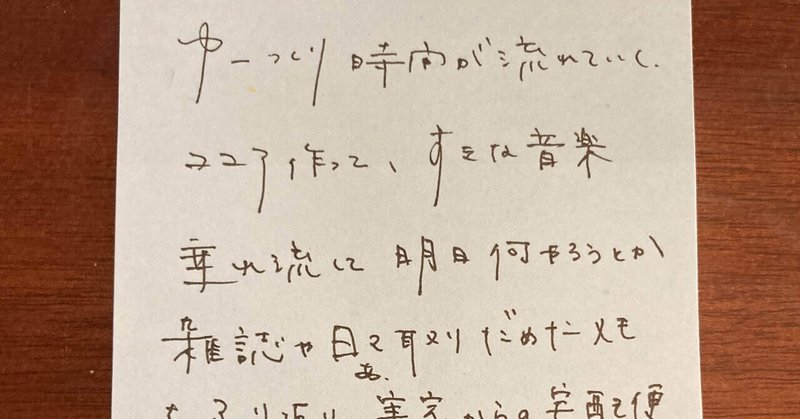 ゆーっくり時間が流れていく.
ココア作って、すきな音楽
垂れ流して明日何やろうとか
雑誌や日々取りだめたメモ
あ.
をふり返り、実家からの宅配便